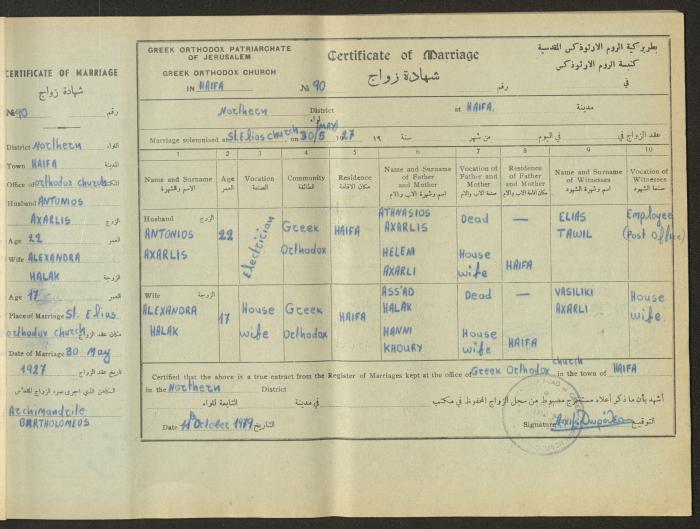 CERTIFICATE OF MARRIAGE
شهادة زواج
№ 90 رقم
District Northern لواء
Town HAIFA المدينة
Office of orthodox church
Husband ANTONIOS
AXARLIS الزوج
Age 22 العمر
Wife ALEXANDRA
HALAK الزوجة
Age 17 العمر
Place of Marriage St. Elias
orthodox church مكان عقد الزواج
Date of Marriage 30 May
1927 تاريخ عقد الزواج
Archimandrite
BARTHOLOMEOS
GREEK ORTHODOX PATRIARCHATE
OF JERUSALEM
GREEK ORTHODOX CHURCH
IN HAIFA
Certificate of Marriage
شهادة زواج
№ 90 رقم
بطريركية الروم الارثوذكس المقدسية
كنيسة الروم الارثوذكس
في
Northern District لواء at HAIFA. مدينة
Marriage solemnised at St. Elias church, on 30/5 (MAY) 1927 19 سنة من شهر في اليوم عقد الزواج في
1 2 3 4 5 6 7 8 9 10
Name and Surname
الاسم والشهرة
Age
العمر
Vocation
الصناعة
Community
الطائفة
Residence
مكان الاقامة
Name and Surname
of Father
and Mother
اسم وشهرة الاب والام
Vocation of
Father and
Mother
صناعة الاب والام
Residence
of Father
and Mother
مكان اقامة الاب والام
Name and Surname
of Witnesses
اسم وشهرة الشهود
Vocation of
Witnesses
صناعة الشهود
Husband الزوج
ANTONIOS
AXARLIS
22
Electrician
Greek
Orthodox
HAIFA
ATHNASIOS
AXARLIS
HELEM
AXARLI
Dead
House
wife
—
HAIFA
ELIAS
TAWIL
Employee
(Post Office)
Wife الزوجة
ALEXANDRA
HALAK
17
House
wife
Greek
Orthodox
HAIFA
ASS'AD
HALAK
HANNI
KHOURY
Dead
House
wife
—
HAIFA
VASILIKI
AXARLI
House
wife.
Certified that the above is a true extract from the Register of Marriages kept at the office of Greek Orthodox church in the town of HAIFA
in the Northern District
أشهد بأن ما ذكر أعلاه مستخرج مضبوط من سجل الزواج المحفوظ في مكتب
في مدينة التابعة للواء
Date October التاريخ
Signature التوقيع